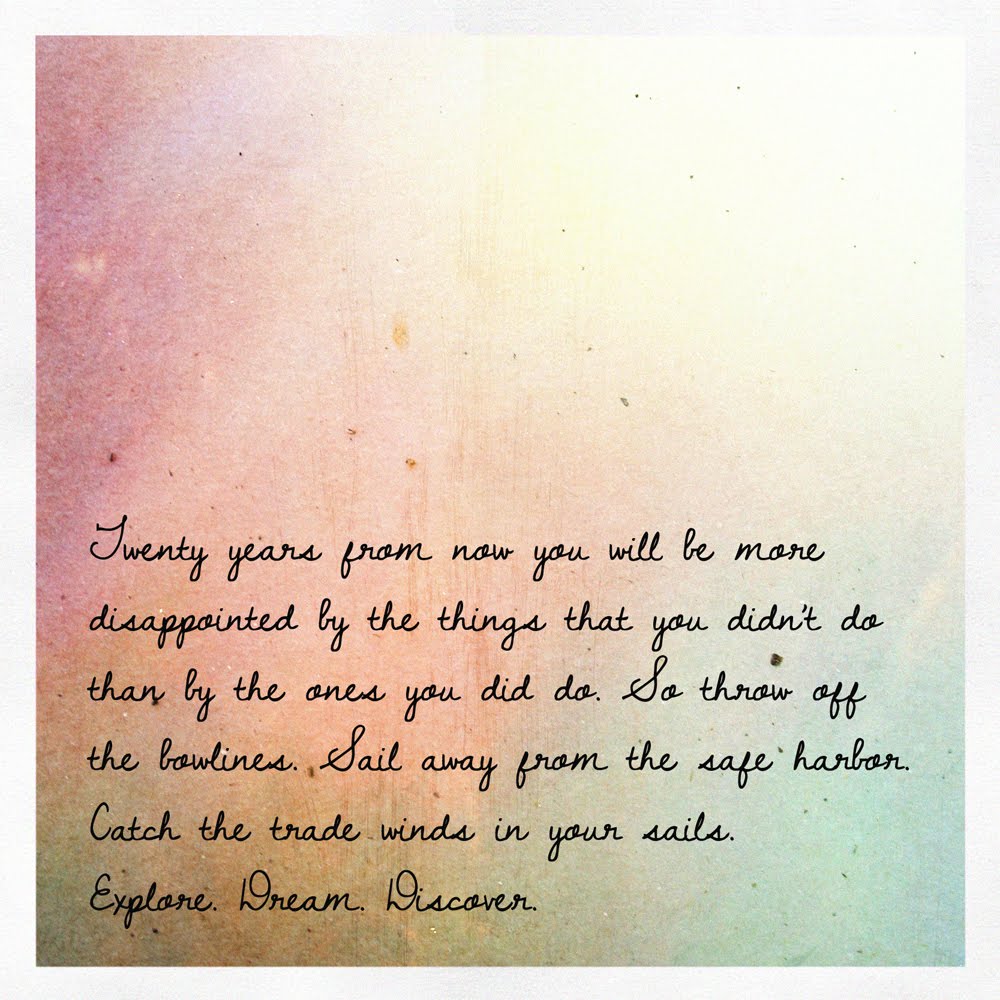 Twenty years from now you will be more
disappointed by the things that you didn't do
than by the ones you did do. So throw off
the bowlines. Sail away from the safe harbor.
Catch the trade winds in your sails.
Explore. Dream. Discover.